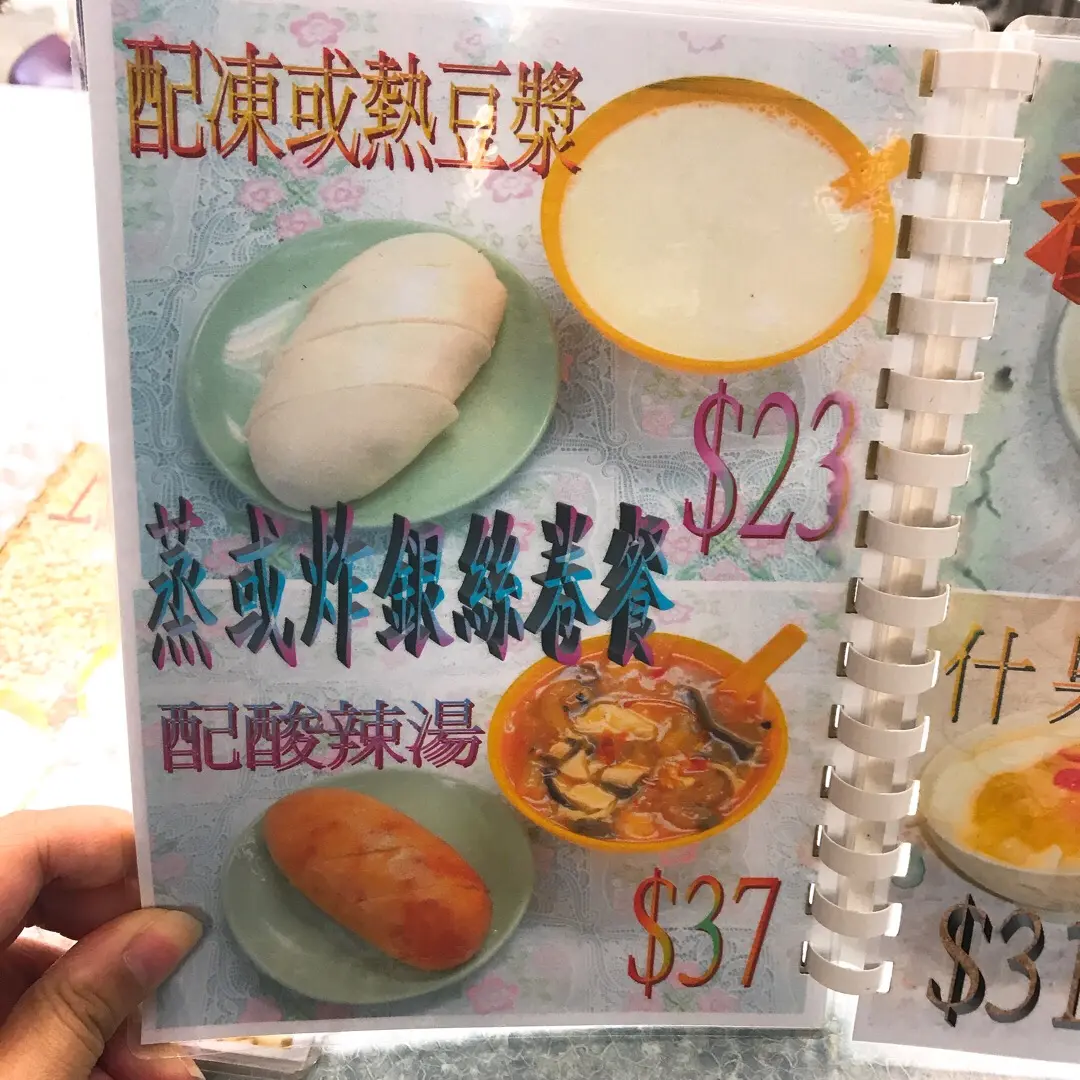 配凍或熱豆漿
$23
蒸或炸銀絲卷餐
配酸辣湯
$37
什
$31